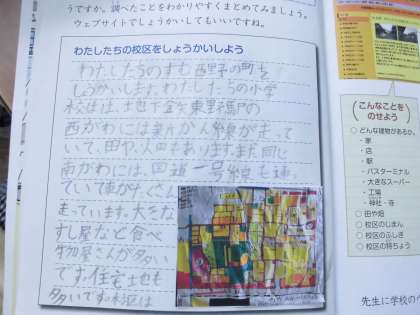 うですか。調べたことをわかりやすくまとめてみましょう。
ウェブサイトでしょうかいしてもいいですね。
わたしたちの校区をしょうかいしよう
わたしたちのすむ西野の町を
しょうかいします。わたしたちの小学
西がわには新かん線が走って
いて、田や、火田もあります。また同じ
南がわには、国道一号線も通っ
ていて車がたくさん
走っています。大きな
すし屋など食べ
物屋さんが多い
です。住宅地も
多いです。校区は
こんなことを
のせよう
○どんな建物があるか。
・家
・店
・駅
・バスターミナル
・大きなスーパー
・工場
・神社・寺
○田や畑
○校区のじまん
○校区のふしぎ
○校区の特ちょう
先生に学校の